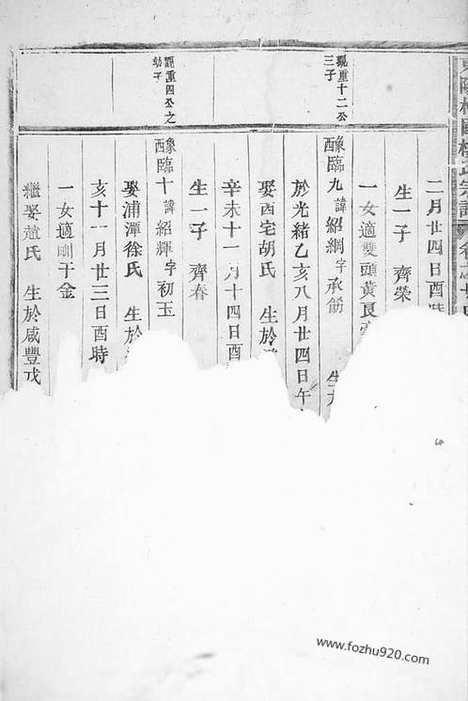 二月廿四日酉時
生一子 齊榮
一女適雙頭黃良
觀重十二公
三子
臨九 諱紹綱 字承
於光緒乙亥八月廿四日午
娶酉宅胡氏 生於
辛未十一月十四日酉
生一子 齊春
重四公之
幼子
臨十 諱紹輝 字初玉
娶浦潭徐氏 生於
亥十一月廿三日酉時
一女適 干金
繼娶趙氏 生於咸豐戊
www.fozhu920.com